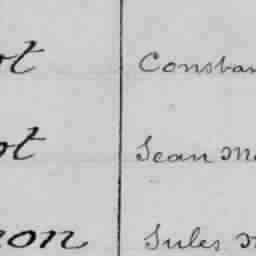 ot Constan
ot Jean Ma
non Jules